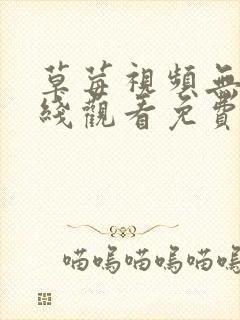 草莓視頻無
綫觀看免費
喵嗚喵嗚喵嗚